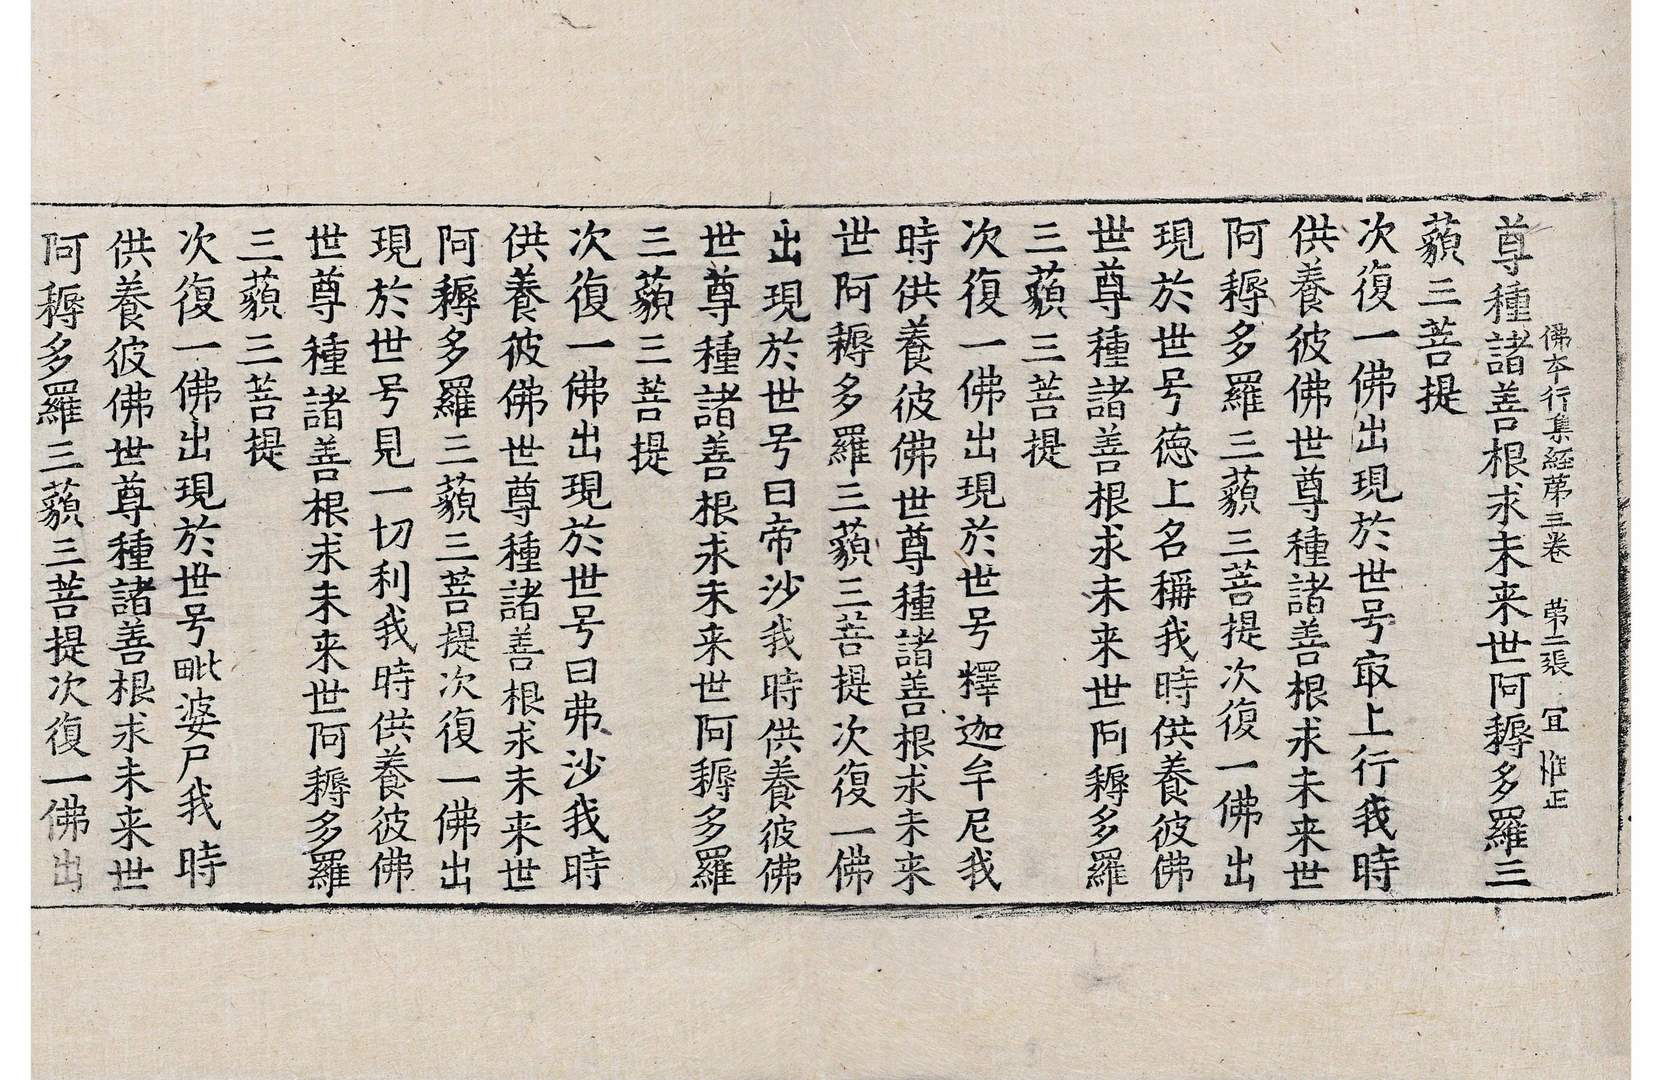 佛本行集経苐三卷　苐二張　宜　惟正
尊種諸善根求未来世阿耨多羅三
藐三菩提
次復一佛出現於世号㝡上行我時
供養彼佛世尊種諸善根求未来世
阿耨多羅三藐三菩提次復一佛出
現於世号德上名稱我時供養彼佛
世尊種諸善根求未来世阿耨多羅
三藐三菩提
次復一佛出現於世号釋迦牟尼我
時供養彼佛世尊種諸善根求未来
世阿耨多羅三藐三菩提次復一佛
出現於世号曰帝沙我時供養彼佛
世尊種諸善根求未来世阿耨多羅
三藐三菩提
次復一佛出現於世号曰弗沙我時
供養彼佛世尊種諸善根求未来世
阿耨多羅三藐三菩提次復一佛出
現於世号見一切利我時供養彼佛
世尊種諸善根求未来世阿耨多羅
三藐三菩提
次復一佛出現於世号毗婆尸我時
供養彼佛世尊種諸善根求未来世
阿耨多羅三藐三菩提次復一佛出